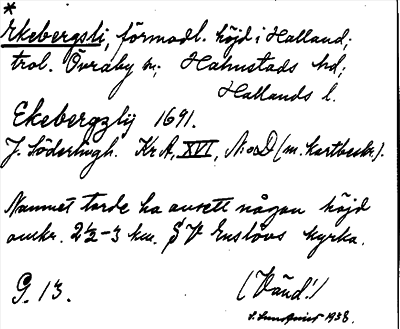 *
Ekebergsli, förmodl. höjd i Halland;
trol. Övraby sn; Halmstads hd;
Hallands l.
Ekebergzlij 1691.
J. Söderlingh. Kr A, XVI, N:o D (m. kartbeskr.).
Namnet torde ha avsett någon höjd
omkr. 2½-3 km. S V Enslövs kyrka.
G. 13.
(Vänd!)
1938.